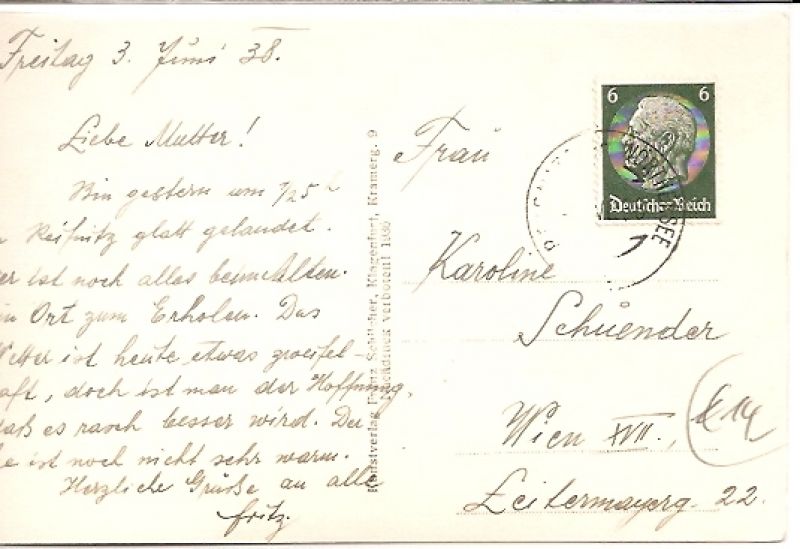 Freitag 3. Juni 38.
Liebe Mutter!
Bin gestern um 1/25 h
Reifnitz glatt gelandet.
er ist noch alles beim alten.
in Ort zum Erholen. Das
Wetter ist heute etwas zweifel-
aft, doch ist man der Hoffnung,
daß es rasch besser wird. Der
e ist noch nicht sehr warm.
Herzliche Grüße an alle
Fritz.
Kunstverlag Franz Schilcher, Klagenfurt, Kramerg. 9
Nachdruck verboten! 1936
6 6
Deutsches Reich
Frau
Karoline
Schuender
Wien XVII.,
Leitermayerg. 22.